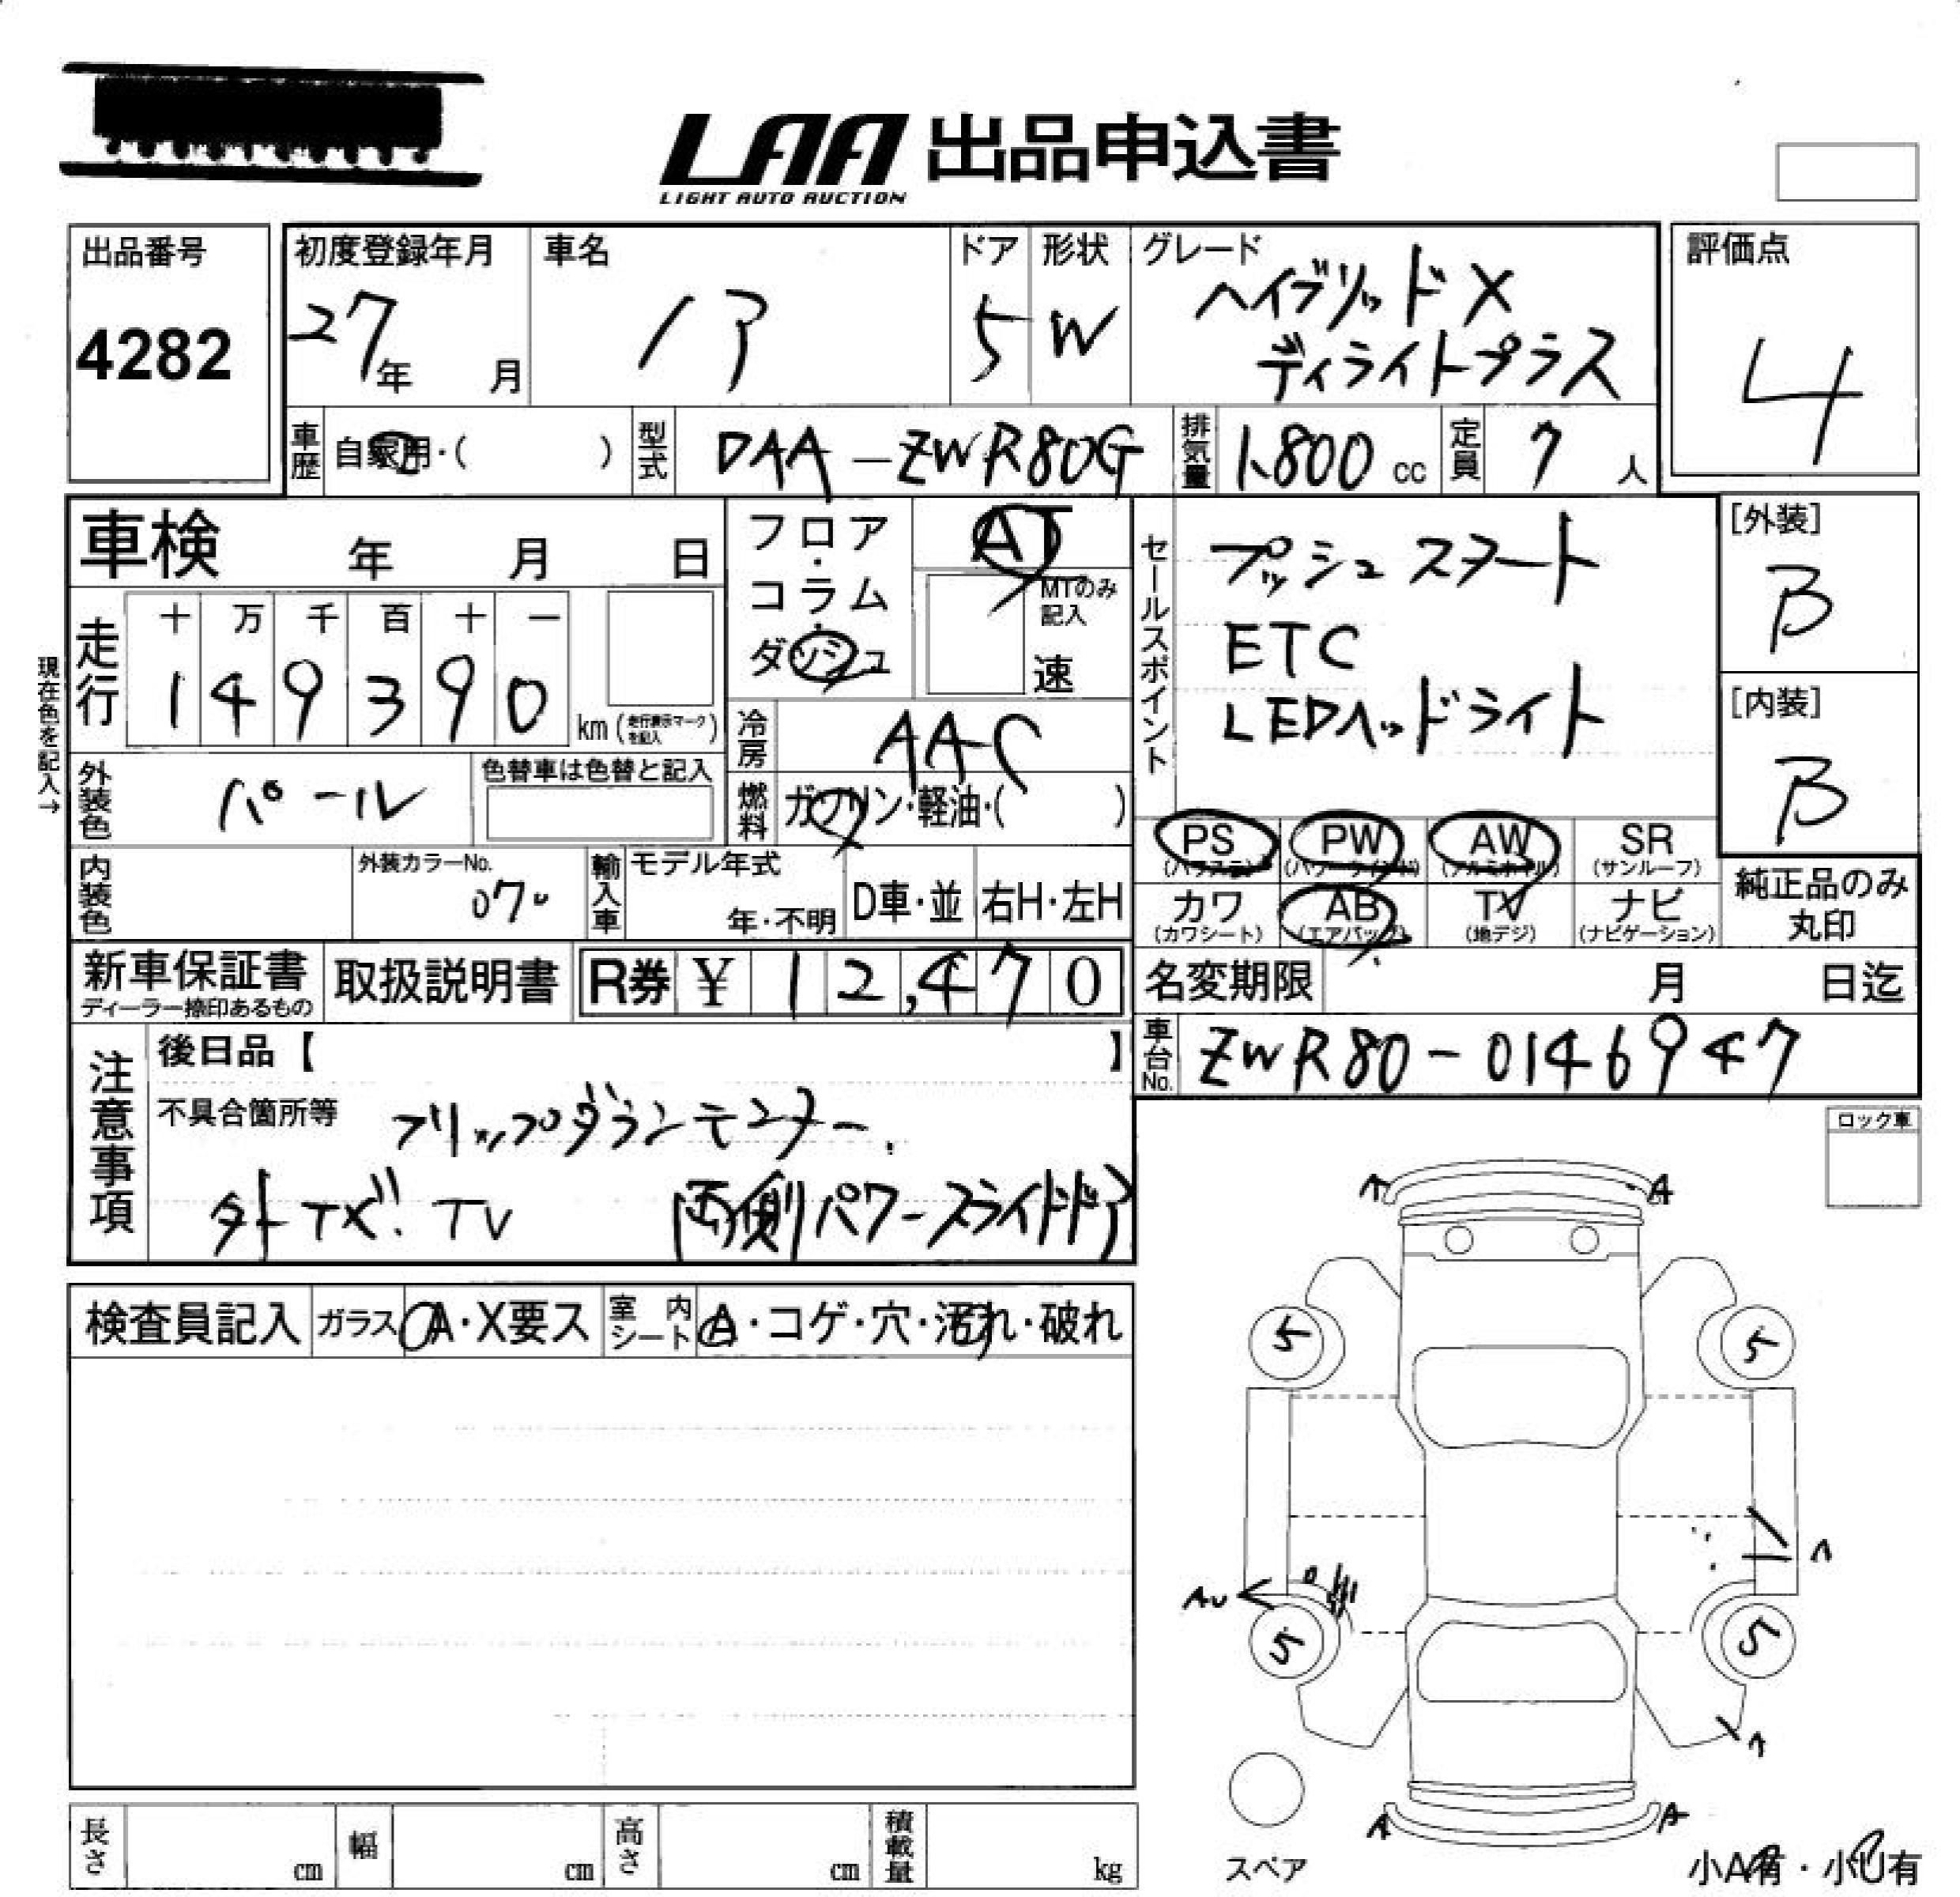 LAA 出品申込書
LIGHT AUTO AUCTION
出品番号
4282
初度登録年月
27年 月
車名
ノア
ドア
5
形状
W
グレード
ハイブリッドX
ディライトプラス
評価点
4
車歴 自家用・( )
型式 DAA-ZWR80G
排気量 1.800 cc
定員 7 人
車検 年 月 日
フロア・コラム・ダッシュ
AT
MTのみ記入
速
セールスポイント
プッシュスタート
ETC
LEDヘッドライト
[外装]
B
[内装]
B
現在色を記入→
走行
十 万 千 百 十 一
1 4 9 3 9 0
km (走行表示マークを記入)
冷房 AAC
外装色 パール
色替車は色替と記入
燃料 ガソリン・軽油・( )
PS (パワステ)
PW (パワーウインド)
AW (アルミホイル)
SR (サンルーフ)
内装色
外装カラーNo.
070
輸入車
モデル年式
年・不明
D車・並
右H・左H
カワ (カワシート)
AB (エアバッグ)
TV (地デジ)
ナビ (ナビゲーション)
純正品のみ
丸印
新車保証書
ディーラー捺印あるもの
取扱説明書
R券 ¥ 12,470
名変期限 月 日迄
車台No. ZWR80-0146947
注意事項
後日品【 】
不具合箇所等
フリップダウンモニター.
外ナビ.TV 両側パワースライドドア
ロック車
検査員記入
ガラス A・X要ス
室内シート A・コゲ・穴・汚れ・破れ
A
A
5
5
A
AU
5
5
A
A
A
スペア
小A有・小U有
長さ cm
幅 cm
高さ cm
積載量 kg